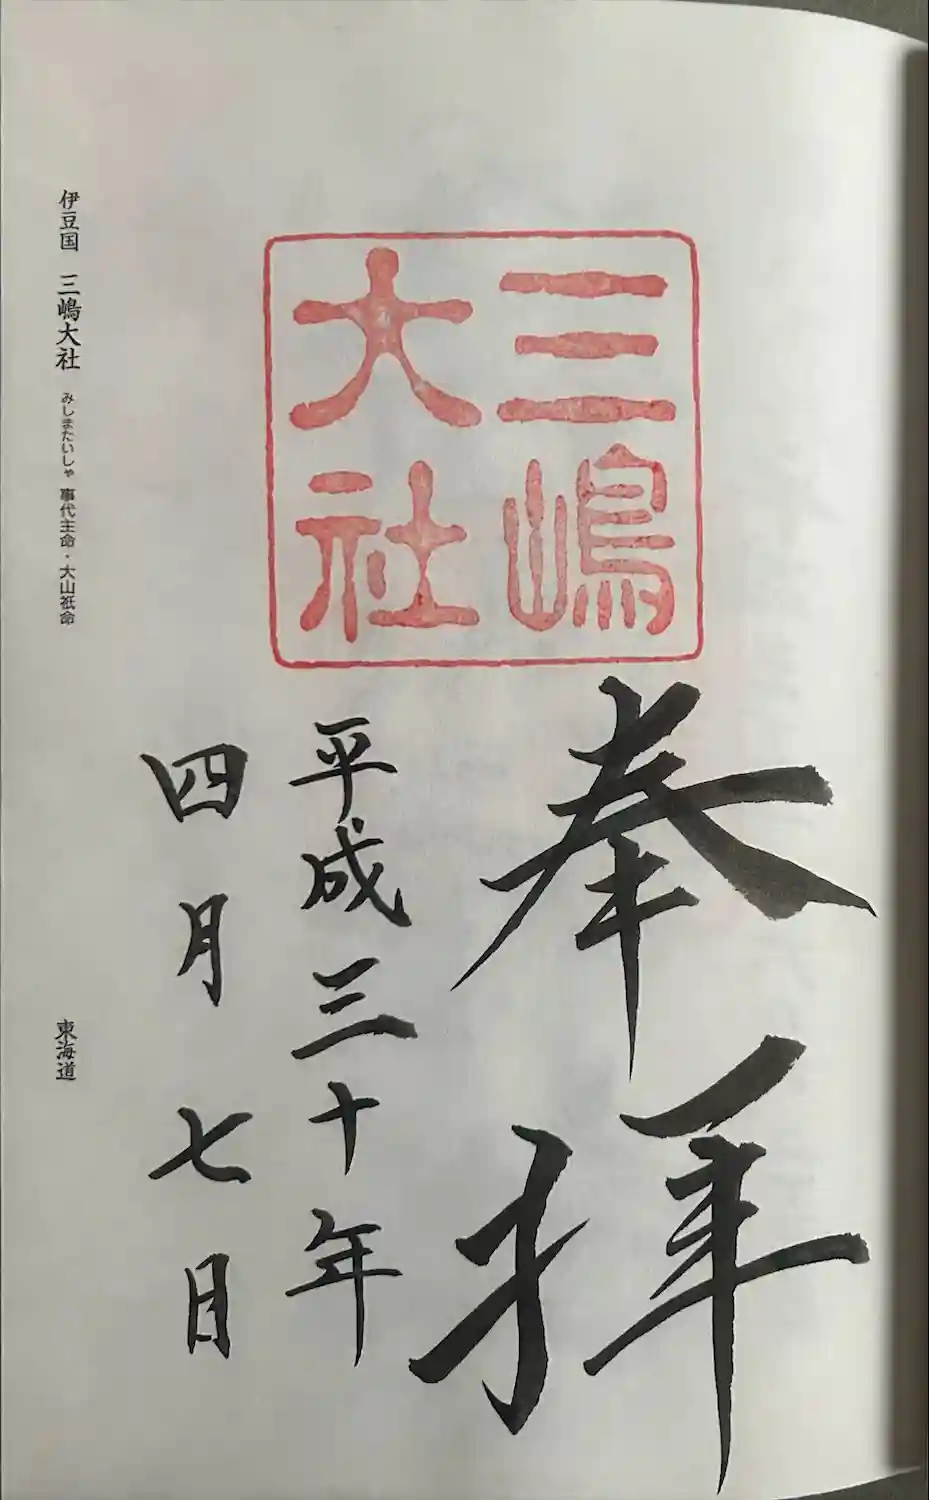 三嶋
大社
奉拝
平成三十年
四月七日
伊豆国 三嶋大社 みしまたいしゃ 事代主命・大山祇命
東海道